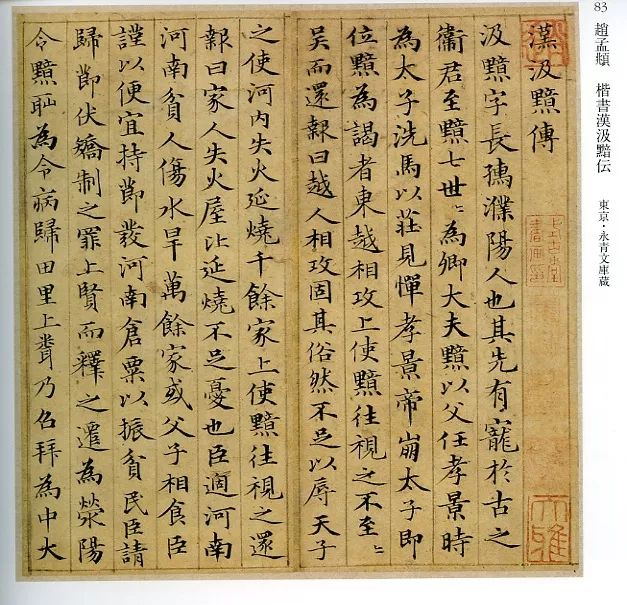 83 趙孟頫 楷書漢汲黯伝 東京・永青文庫蔵
漢汲黯傳
汲黯字長孺濮陽人也其先有寵於古之
衞君至黯七世〻為卿大夫黯以父任孝景時
為太子洗馬以莊見憚孝景帝崩太子即
位黯為謁者東越相攻上使黯往視之不至〻
吳而還報曰越人相攻固其俗然不足以辱天子
之使河内失火延燒千餘家上使黯往視之還
報曰家人失火屋比延燒不足憂也臣適河南
河南貧人傷水旱萬餘家或父子相食臣
謹以便宜持節發河南倉粟以振貧民臣請
歸節伏矯制之罪上賢而釋之遷為滎陽
令黯恥為令病歸田里上聞乃召拜為中大
大雅